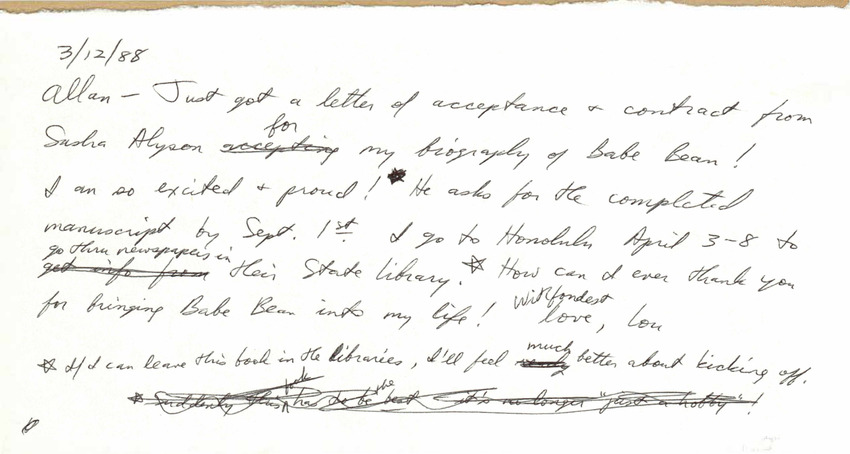 3/12/88
Allan — Just got a letter of acceptance + contract from
Sasha Alyson accepting for my biography of Babe Bean!
I am so excited + proud! He asks for the completed
manuscript by Sept. 1st. I go to Honolulu April 3-8 to
go thru newspapers in
get info from their State library. ☆ How can I ever thank you
for bringing Babe Bean into my life! With fondest
love, Lou
☆ If I can leave this book in the libraries, I'll feel much better about kicking off.
☆ Suddenly this has to be the best it's no longer "just a hobby"!